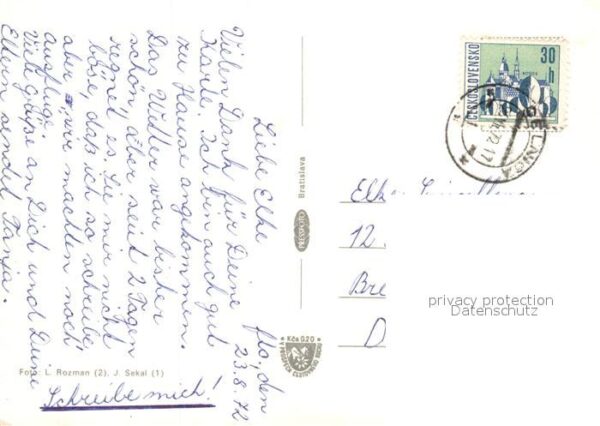 flo, den
23.8.72
Liebe Elke
Vielen Dank für Deine
Karte. Ich bin auch gut
zu Hause angekommen.
Das Wetter war bisher
schön aber seit 2 Tagen
regnet es. Sei mir nicht
böse, daß ich so schreibe
aber wir machten noch
Ausflüge.
Viele Grüße an Dich und Deine
Eltern sendet Tanja.
Schreibe mich!
Foto: L. Rozman (2), J. Sekal (1)
Bratislava
PRESSFOTO
Kčs 0,20
ČESKOSLOVENSKO
30
h
GELNICA
72.17
Elke
12.
Bre
D
privacy protection
Datenschutz